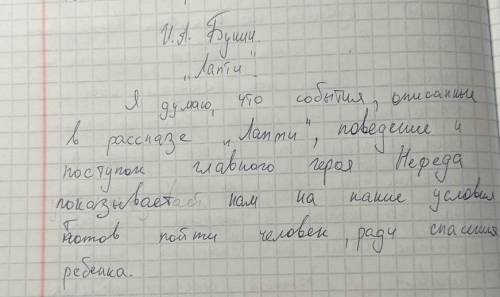 И. А. Бунин.
„Лапти“.
Я думаю, что события, описанные
в рассказе „Лапти“, поведение и
поступок главного героя Нефеда
показывает нам на какие условия
готов пойти человек, ради спасения
ребенка.